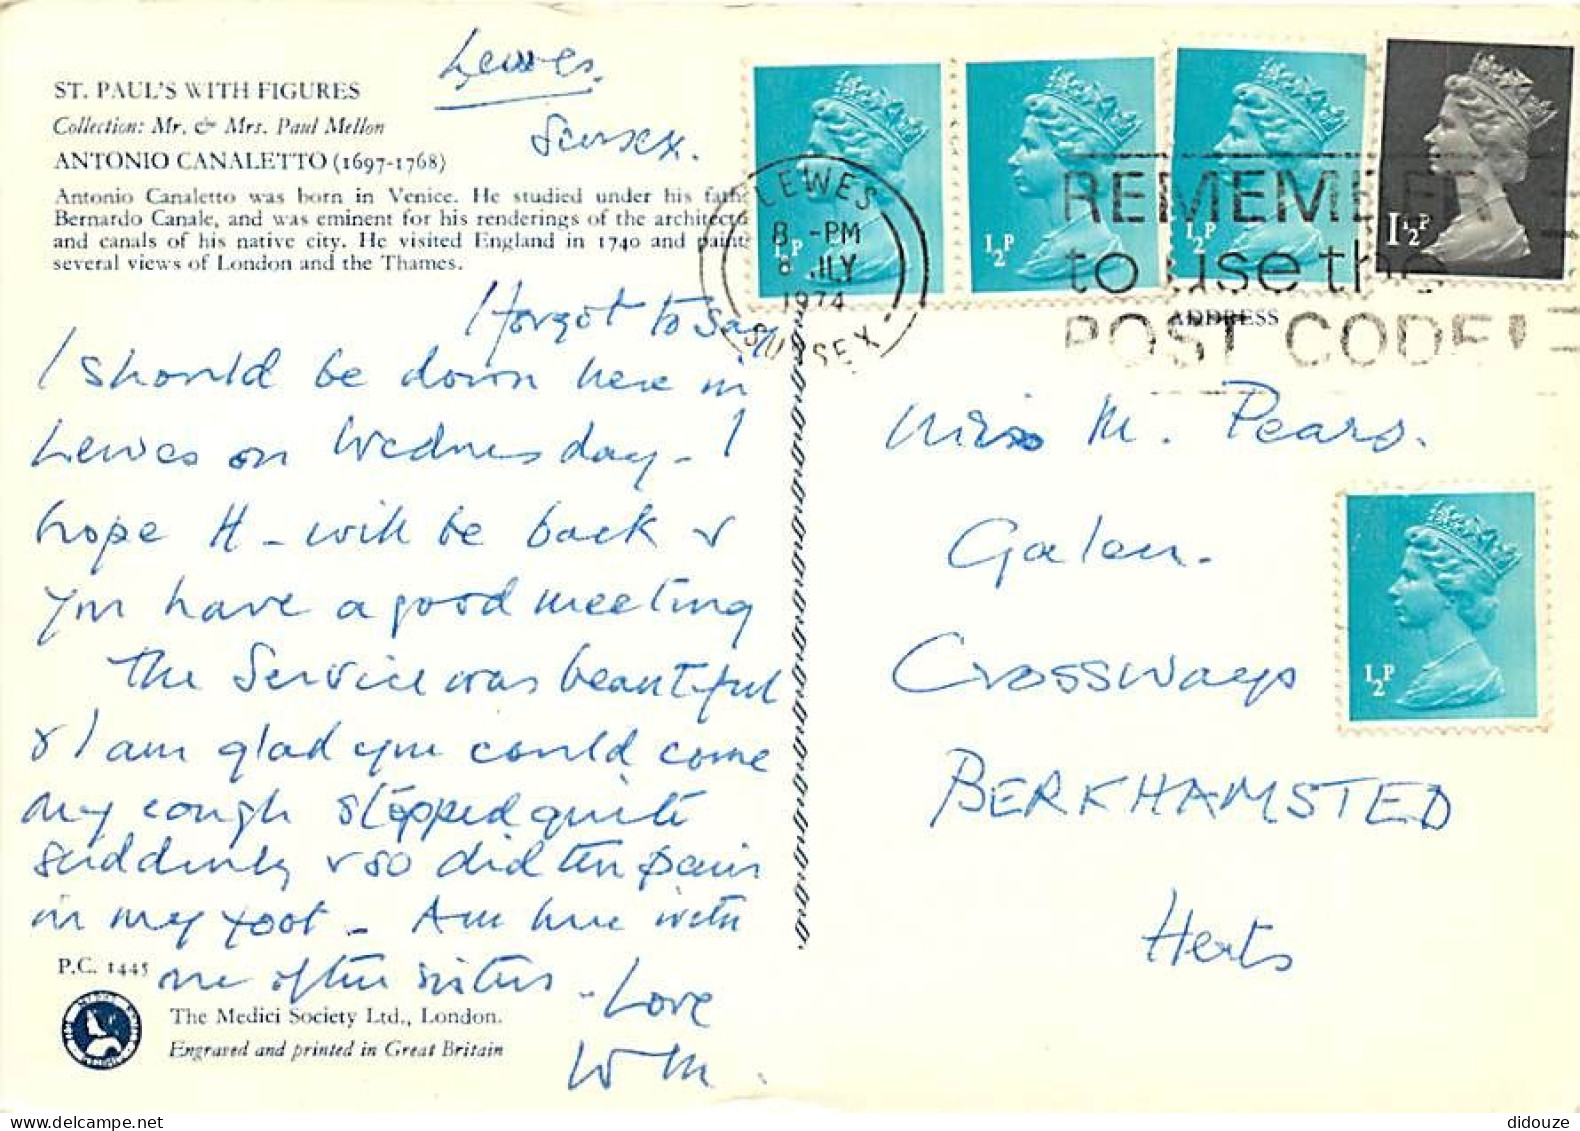 ST. PAUL'S WITH FIGURES
Collection: Mr. & Mrs. Paul Mellon
ANTONIO CANALETTO (1697-1768)
Antonio Canaletto was born in Venice. He studied under his fath
Bernardo Canale, and was eminent for his renderings of the architectu
and canals of his native city. He visited England in 1740 and paint
several views of London and the Thames.
Lewes.
Sussex.
I forgot to say
I should be down here in
Lewes on Wednesday - I
hope H - will be back &
you have a good meeting
The Service was beautiful
& I am glad you could come
my cough stopped quite
suddenly & so did the pain
in my foot - Am here with
one of the sisters - Love
W M.
P.C. 1445
The Medici Society Ltd., London.
Engraved and printed in Great Britain
½P
½P
½P
1½P
LEWES
8 -PM
8 JLY
1974
SUSSEX
REMEMBER
to use the
POST CODE!
ADDRESS
Miss M. Pears.
Galen.
Crossways
BERKHAMSTED
Herts
½P
didouze